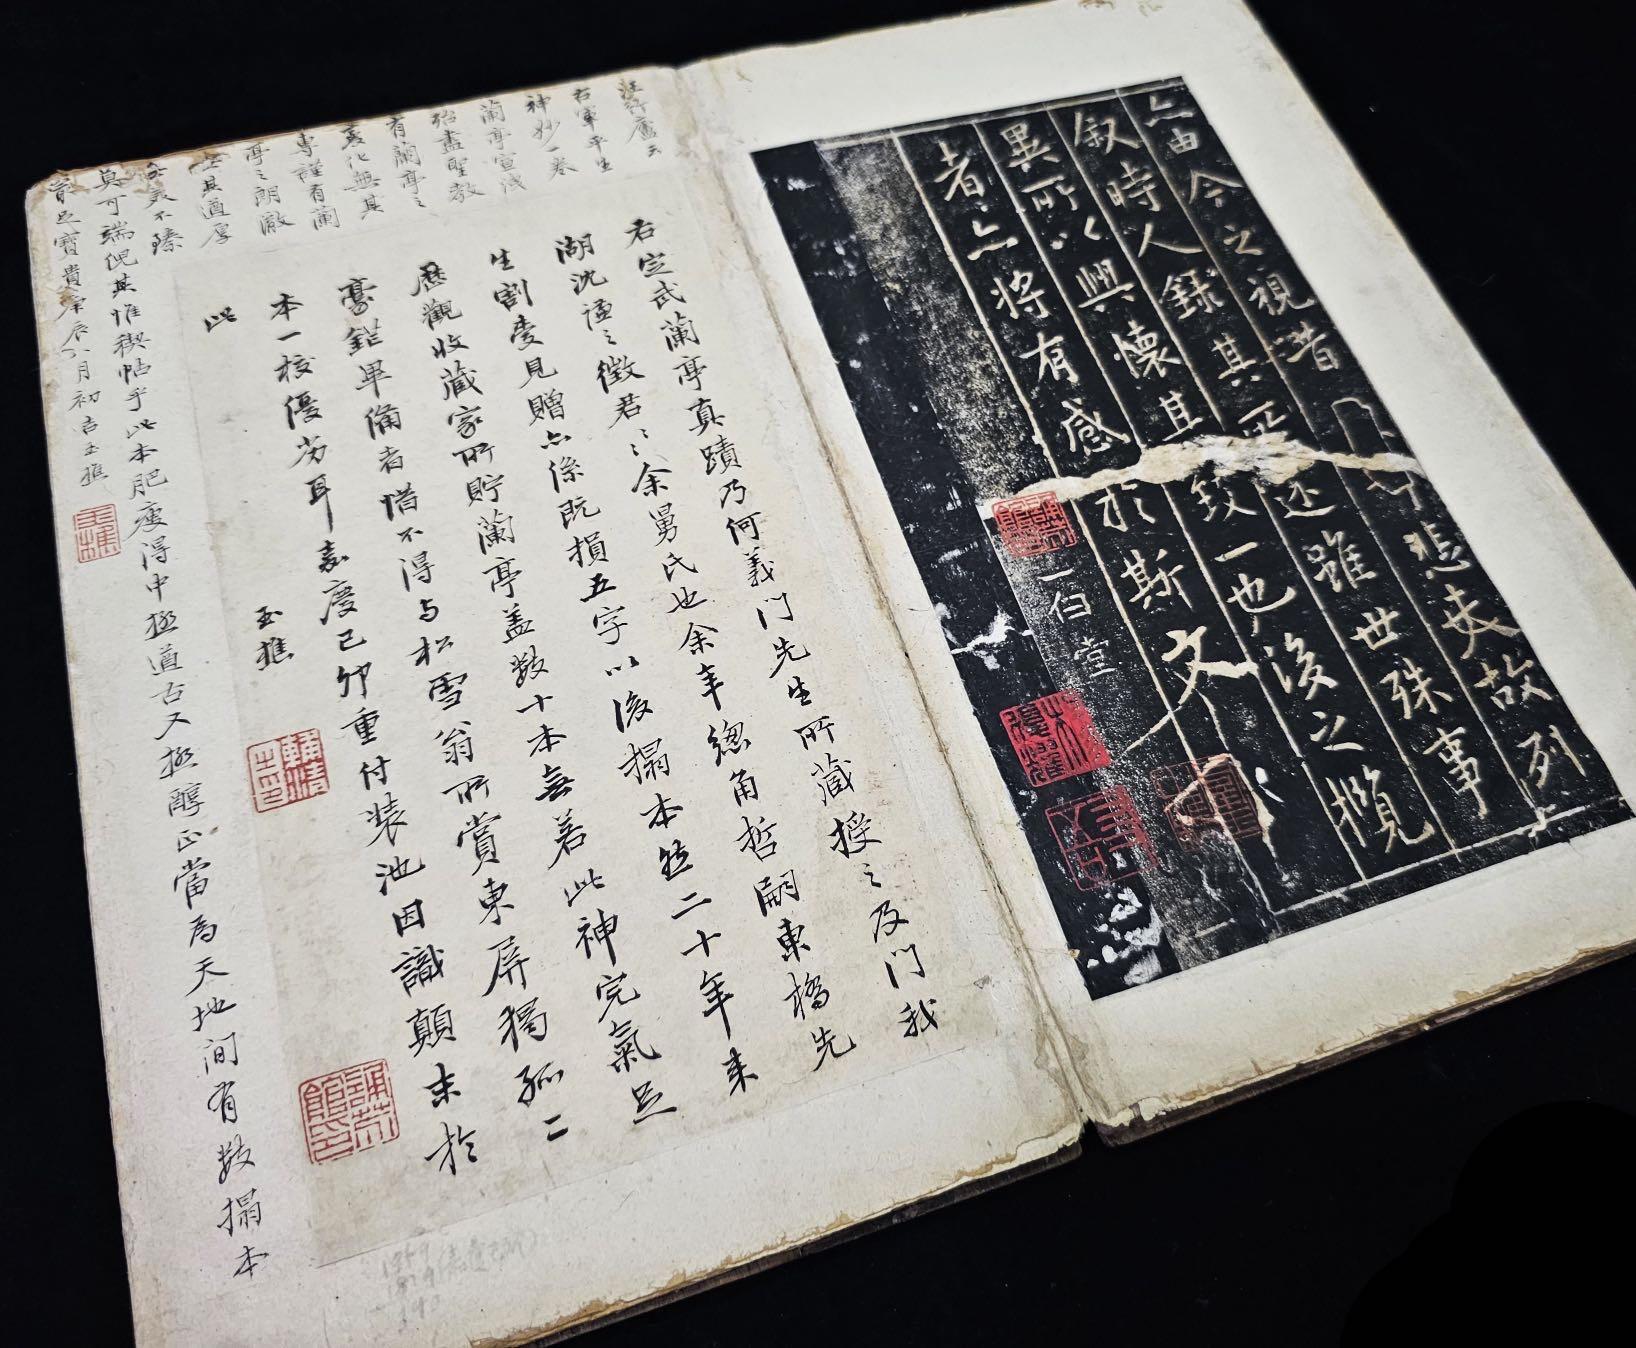 亦由今之視昔
悲夫故列
叙時人錄其所述雖世殊事
異所以興懷其致一也後之攬
者亦將有感於斯文
一白堂
右定武蘭亭真蹟乃何義門先生所藏授之及門我
湖沈謹之徵君之余舅氏也余年總角哲嗣東橋先
生割愛見贈亦係既損五字以後搨本然二十年來
歷觀收藏家所貯蘭亭盖數十本無若此神完氣足
豪鋩畢備者惜不得与松雪翁所賞東屏獨孤二
本一校優劣耳嘉慶己卯重付裝池因識顛末於
此
玉樵
汪竹廬云
右軍平生
神妙一卷
蘭亭宣洩
殆盡聖教
有蘭亭之
變化無其
專謹有蘭
亭之朗澈
無其道厚
美不臻
莫可端倪其惟稧帖乎此本肥瘦得中極遒古又極醇正當為天地间有數搨本
寶貴庚辰八月初吉玉樵